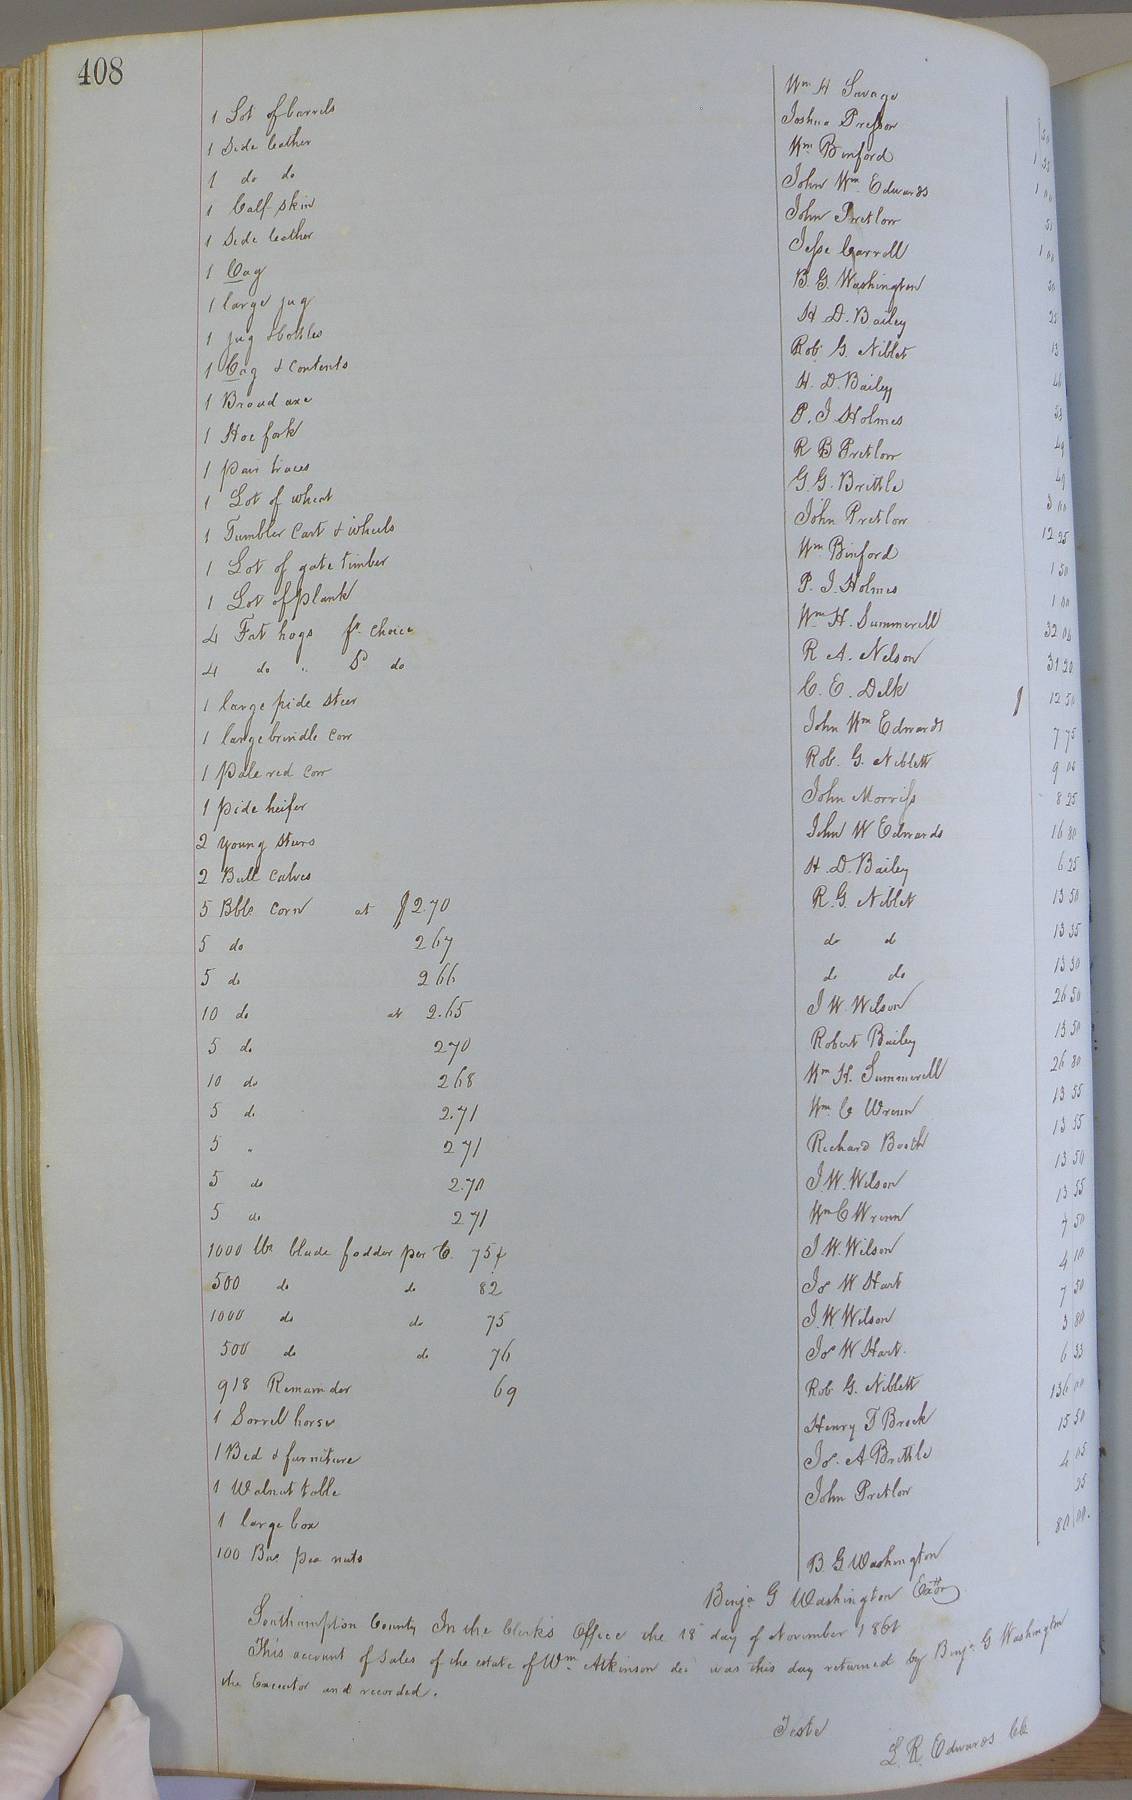 408
1 Lot of barrels Wm H Savage
1 Side leather Joshua Presson 50
1 do do Wm Binford 1 35
1 Calf skin John Wm Edwards 1 00
1 Side leather John Pretlow 51
1 Cag Jesse Carroll 1 00
1 large jug B. G. Washington 50
1 jug & bottles H. D. Bailey 25
1 Cag & contents Rob. G. Niblet 13
1 Broad axe H. D. Bailey
1 Hoe fork P. J. Holmes
1 pair traces R B Pretlow
1 Lot of wheat G. G. Brittle
1 Tumbler Cart & wheels John Pretlow 12 25
1 Lot of gate timber Wm Binford 1 50
1 Lot of plank P. J. Holmes 1 00
4 Fat hogs fs. choice Wm H. Summerell 32 00
4 do " Sd do R A. Nelson 31 20
1 large pide steer C. E. Delk 12 50
1 large brindle cow John Wm Edwards 7 75
1 pale red cow Rob. G. Niblett 9 00
1 pide heifer John Morriss 8 25
2 young steers John W Edwards 16 80
2 Bull calves H. D. Bailey 6 25
5 Bbls corn at $2.70 R. G. Niblet 13 50
5 do 267 do do 13 35
5 do 266 do do 13 30
10 do at 2.65 J W. Wilson 26 50
5 do 270 Robert Bailey 13 50
10 do 268 Wm H. Summerell 26 80
5 do 2.71 Wm C Wrenn 13 55
5 " 271 Richard Booth 13 55
5 do 2.70 J. W. Wilson 13 50
5 do 271 Wm C Wrenn 13 55
1000 lbs blade fodder per C. 75¢ J W. Wilson 7 50
500 do do 82 Jos W Hart 4 10
1000 do do 75 J. W Wilson 7 50
500 do do 76 Jos W Hart. 3 80
918 Remainder 69 Rob. G. Niblett 6 33
1 Sorrel horse Henry T Brock 136 00
1 Bed & furniture Jos. A Brittle 15 50
1 Walnut table John Pretlow 4 05
1 large box 25
100 Bus pea nuts B G Washington 80 00.
Benja G Washington Exttor
Southampton County In the Clerk's Office the 18" day of November 1861
This account of sales of the estate of Wm Atkinson decd was this day returned by Benja G Washington
the Executor and recorded.
Teste
L. R. Edwards Clk